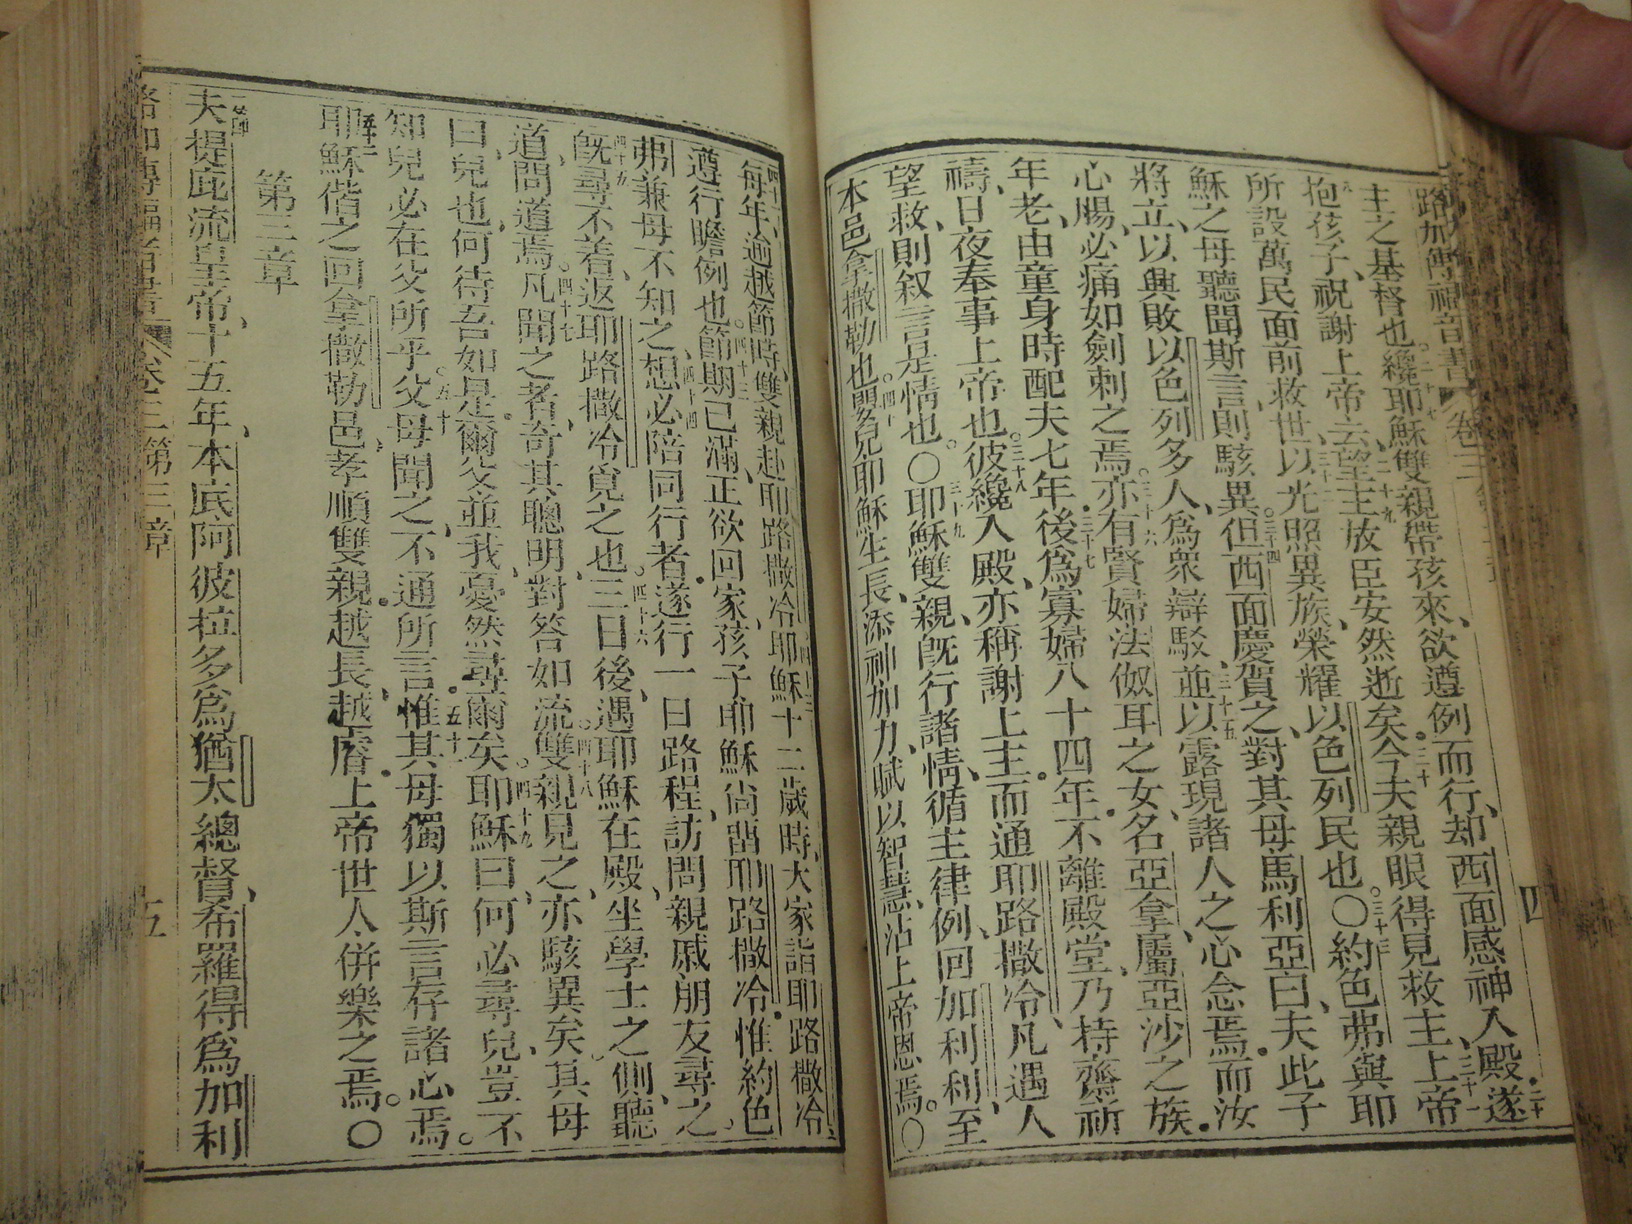 路加傳福音書 卷三
四
主之基督也。二十七纔耶穌雙親帶孩來、欲遵例而行、却西面感神入殿、遂
抱孩子、祝謝上帝云、二十九望主放臣安然逝矣。三十今夫親眼得見救主、三十一上帝
所設萬民面前救世、三十二以光照異族、榮耀以色列民也。〇三十三約色弗與耶
穌之母聽聞斯言、則駭異。三十四但西面慶賀之、對其母馬利亞曰、夫此子
將立、以興敗以色列多人、爲衆辯駁、三十五並以露現諸人之心念焉。而汝
心腸、必痛如劍刺之焉。三十六亦有賢婦法伮耳之女、名亞拿、屬亞沙之族。
年老、由童身時配夫七年。三十七後爲寡婦八十四年。不離殿堂、乃持齋祈
禱、日夜奉事上帝也。三十八彼纔入殿、亦稱謝上主。而通耶路撒冷、凡遇人
望救、則叙言是情也。〇三十九耶穌雙親、旣行諸情、循主律例、回加利利、至
本邑拿撒勒也。四十嬰兒耶穌生長、添神加力、賦以智慧、沾上帝恩焉。〇
四十一每年、逾越節時、雙親赴耶路撒冷、四十二耶穌十二歲時、大家詣耶路撒冷、
遵行瞻例也。四十三節期已滿、正欲回家、孩子耶穌尚畱耶路撒冷。惟約色
弗兼母不知之、四十四想必陪同行者。遂行一日路程、訪問親戚朋友尋之。
四十五旣尋不着、返耶路撒冷覓之也。四十六三日後、遇耶穌在殿、坐學士之側、聽
道問道焉。四十七凡聞之者、奇其聰明、對答如流。四十八雙親見之、亦駭異矣、其母
曰、兒也、何待吾如是。爾父並我、憂然尋爾矣。四十九耶穌曰、何必尋兒、豈不
知兒必在父所乎。五十父母聞之、不通所言。五十一惟其母獨以斯言存諸心焉。
耶穌偕之回拿撒勒邑、孝順雙親。五十二越長、越膺上帝世人併樂之焉。〇
第三章
夫提庇流皇帝、十五年、本底阿彼拉多爲猶太總督、希羅得爲加利
路加傳福音書 卷三 第三章
五